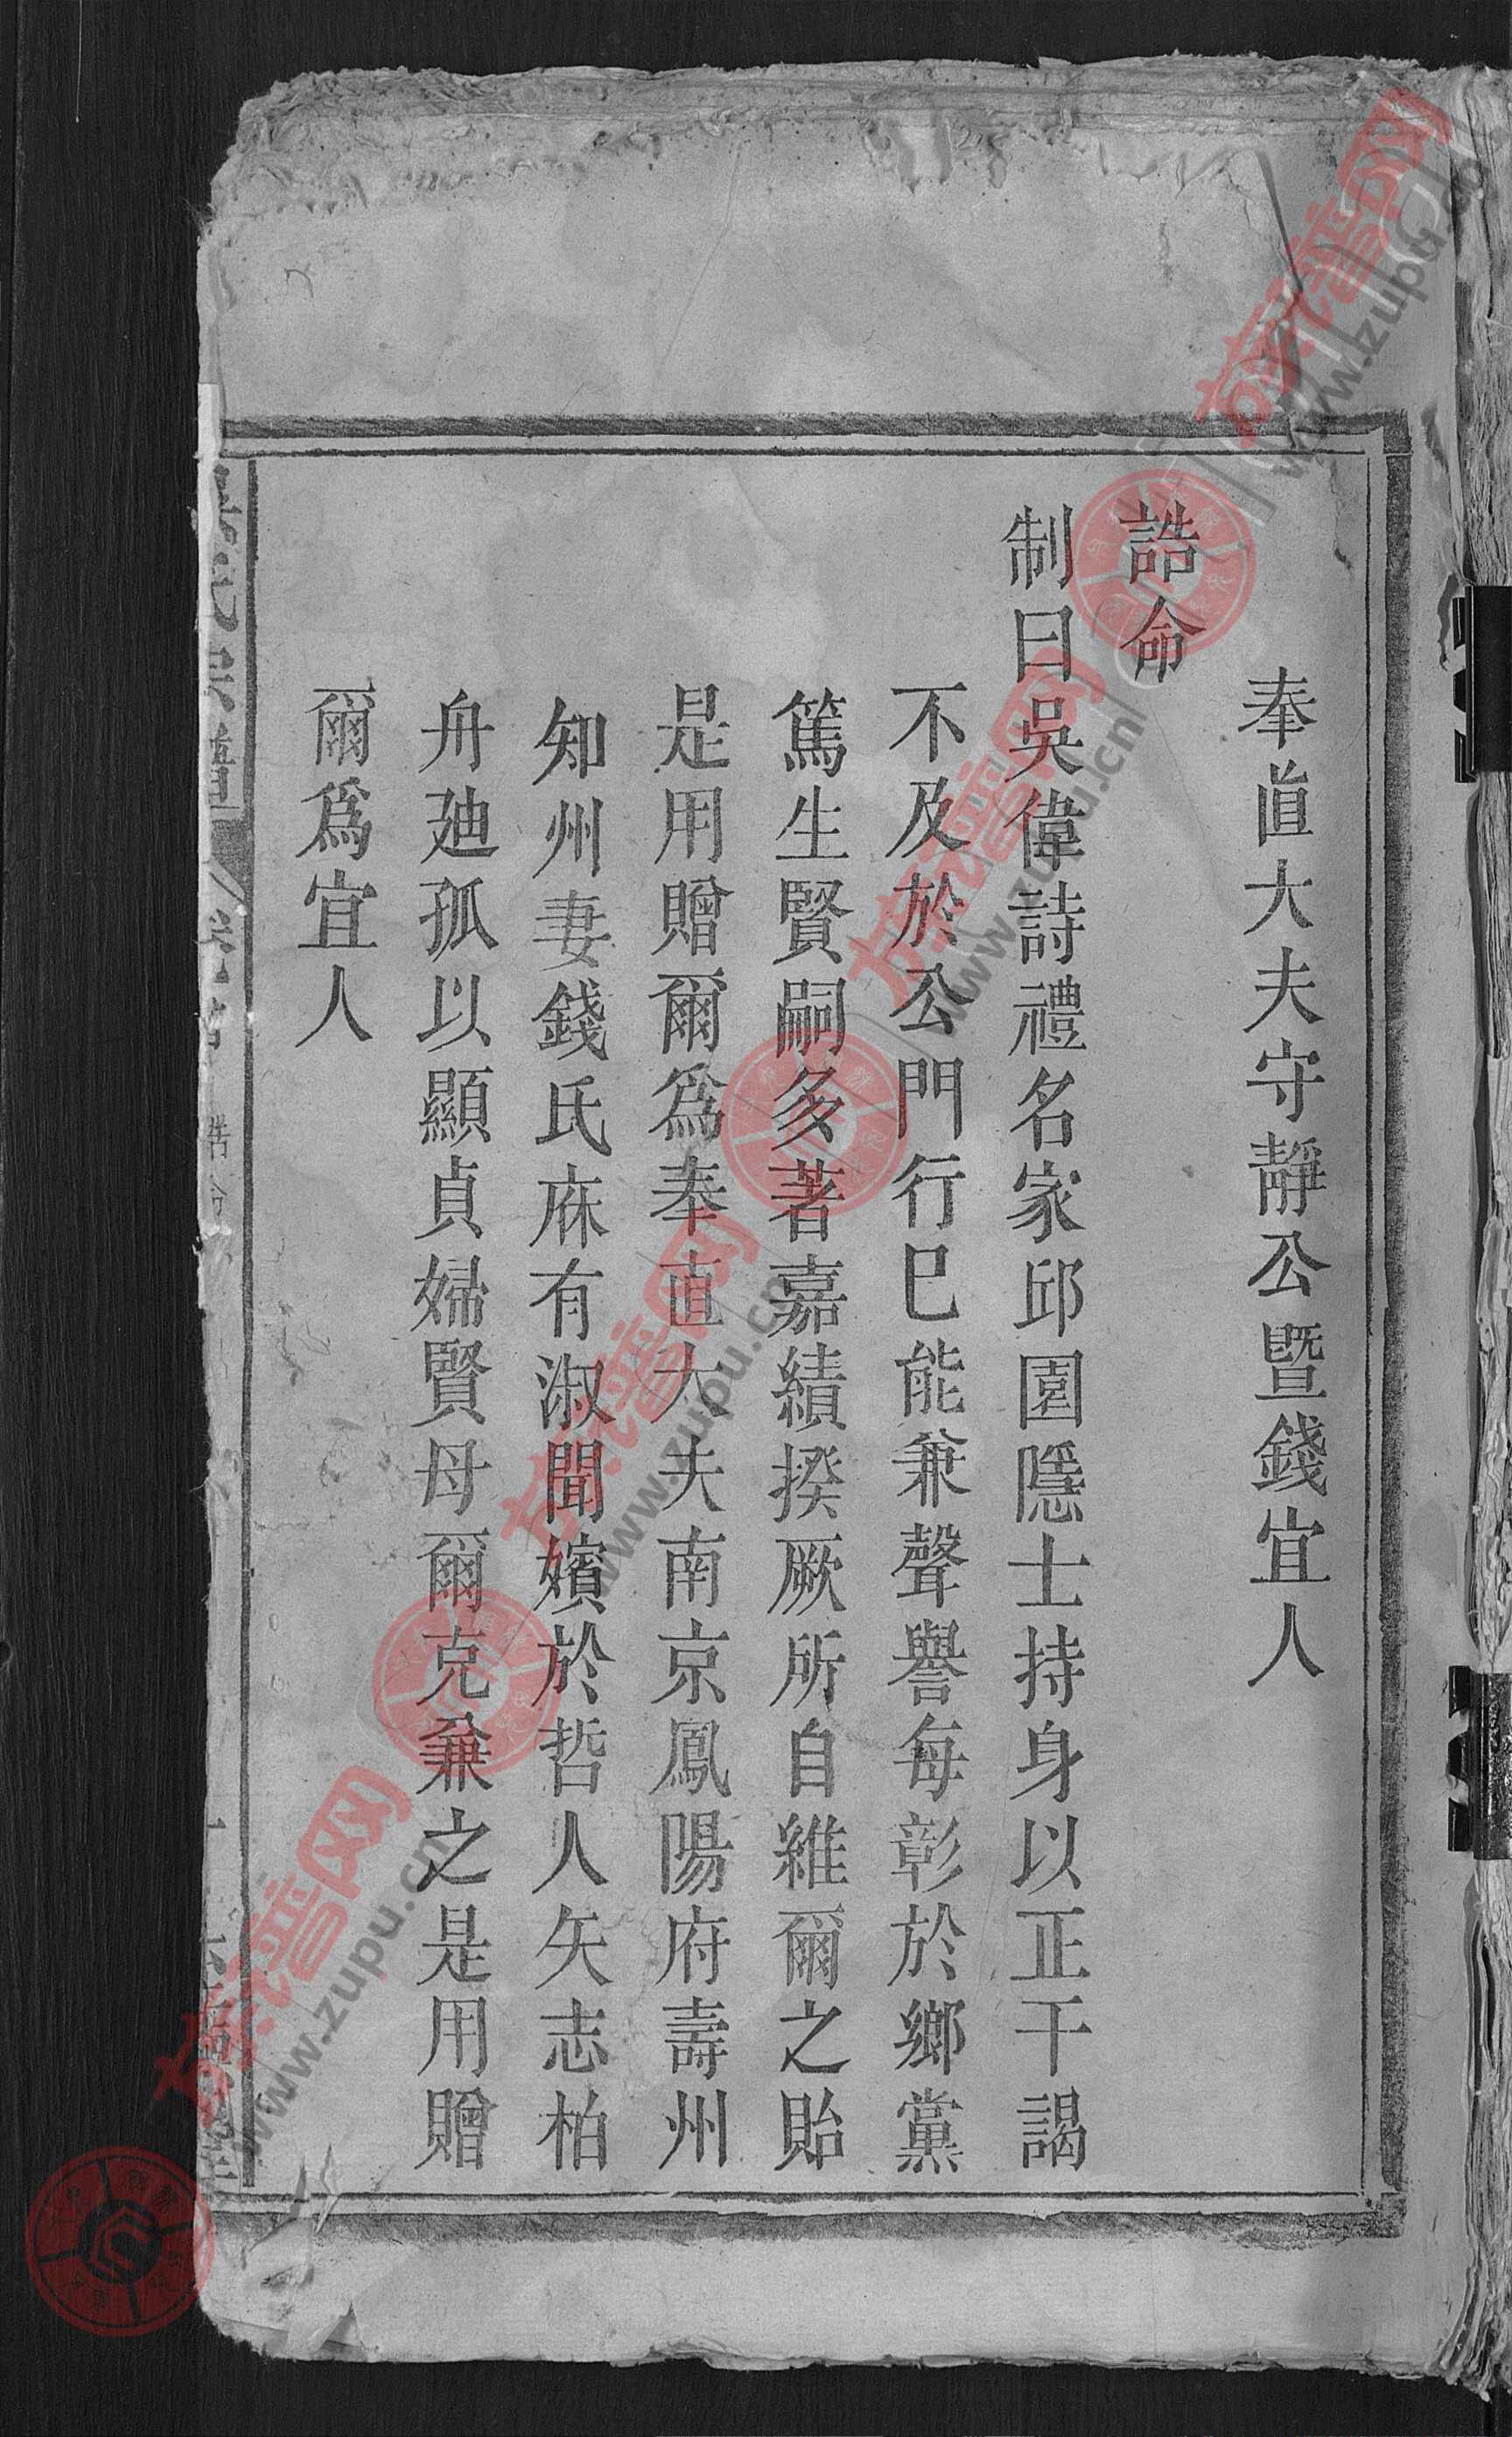 奉直大夫守靜公暨錢宜人
誥命
制曰吳偉詩禮名家邱園隱士持身以正干謁
不及於公門行已能兼聲譽每彰於鄉黨
篤生賢嗣多著嘉績揆厥所自維爾之貽
是用贈爾為奉直大夫南京鳳陽府壽州
知州妻錢氏庥有淑聞嬪於哲人矢志柏
舟廸孤以顯貞婦賢母爾克兼之是用贈
爾為宜人
族谱网
www.zupu.cn
族谱网
www.zupu.cn
族谱网
www.zupu.cn
族谱网
www.zupu.cn